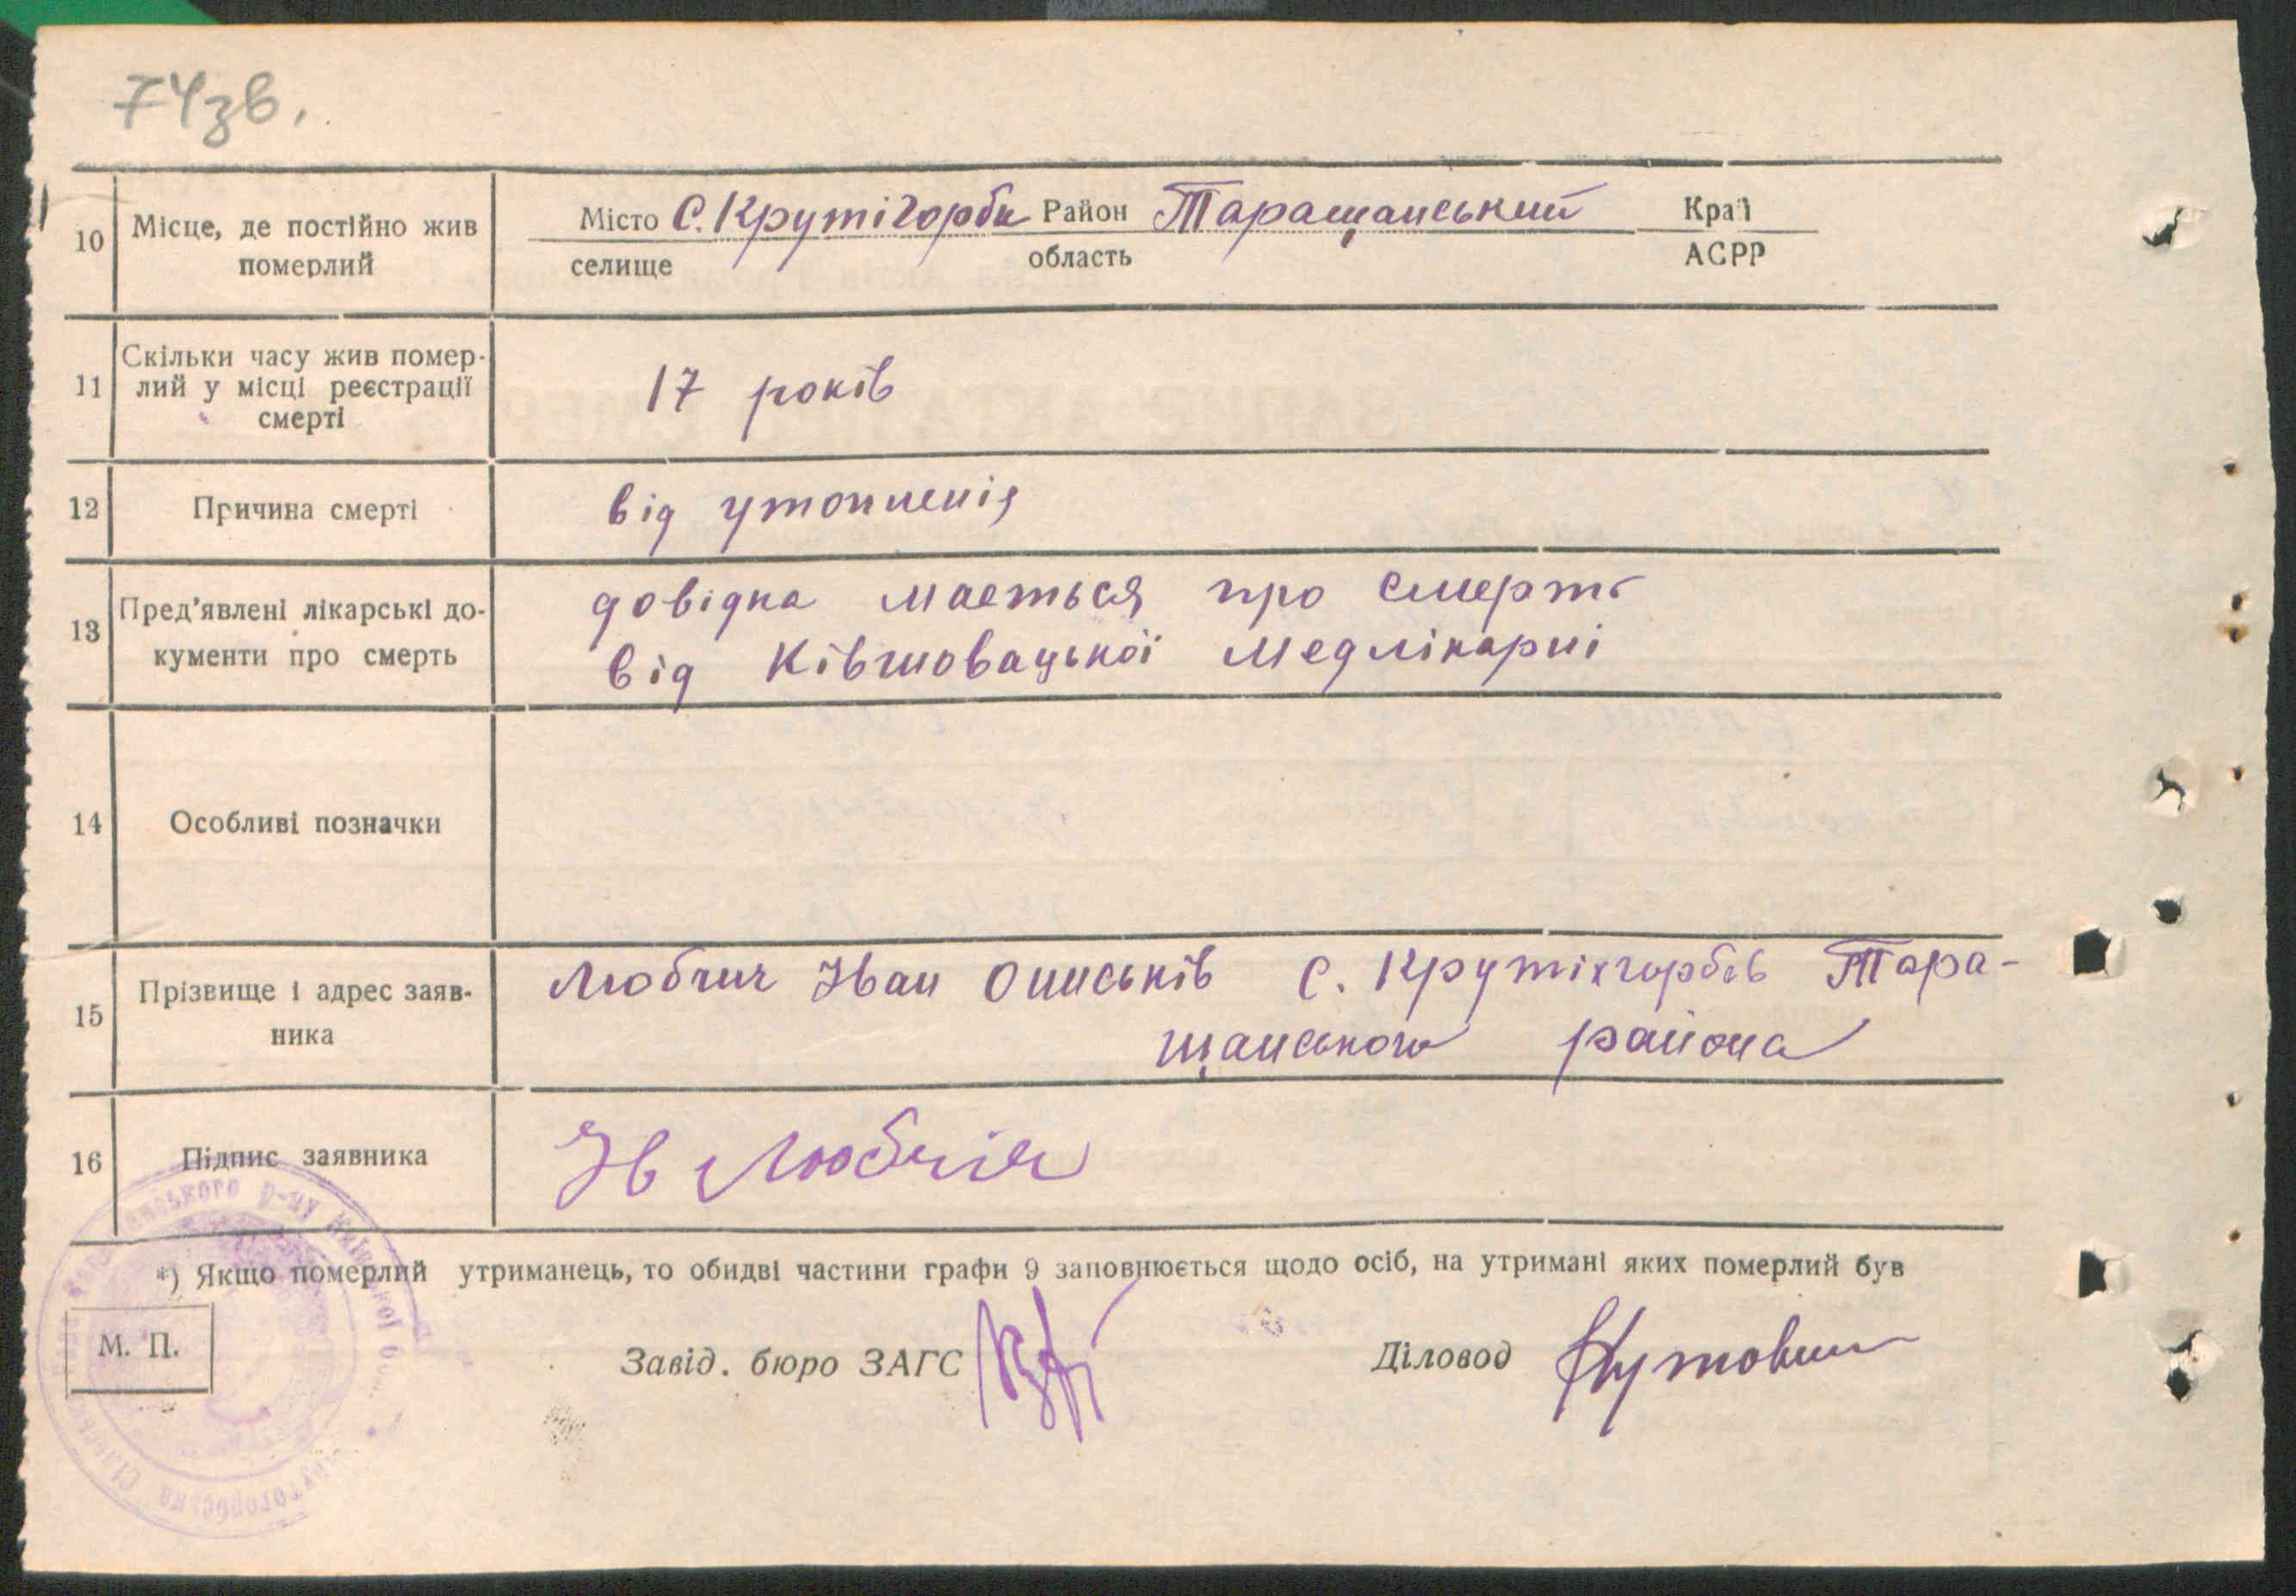 74зв.
10 Місце, де постійно жив померлий
Місто С. Крутігорби Район Таращанський Краї
селище область АСРР
11 Скільки часу жив помер-
лий у місці реєстрації
смерті
17 років
12 Причина смерті
від утопленія
13 Пред'явлені лікарські до-
кументи про смерть
довідка мається про смерть
від Ківшовацької медлікарні
14 Особливі позначки
15 Прізвище і адрес заяв-
ника
Любчич Іван Ониськів С. Крутіхгорбів Тара-
щанського района
16 Підпис заявника
Ів Любчич
*) Якщо померлий утриманець, то обидві частини графи 9 заповнюється щодо осіб, на утримані яких померлий був
М. П.
Завід. бюро ЗАГС
Діловод